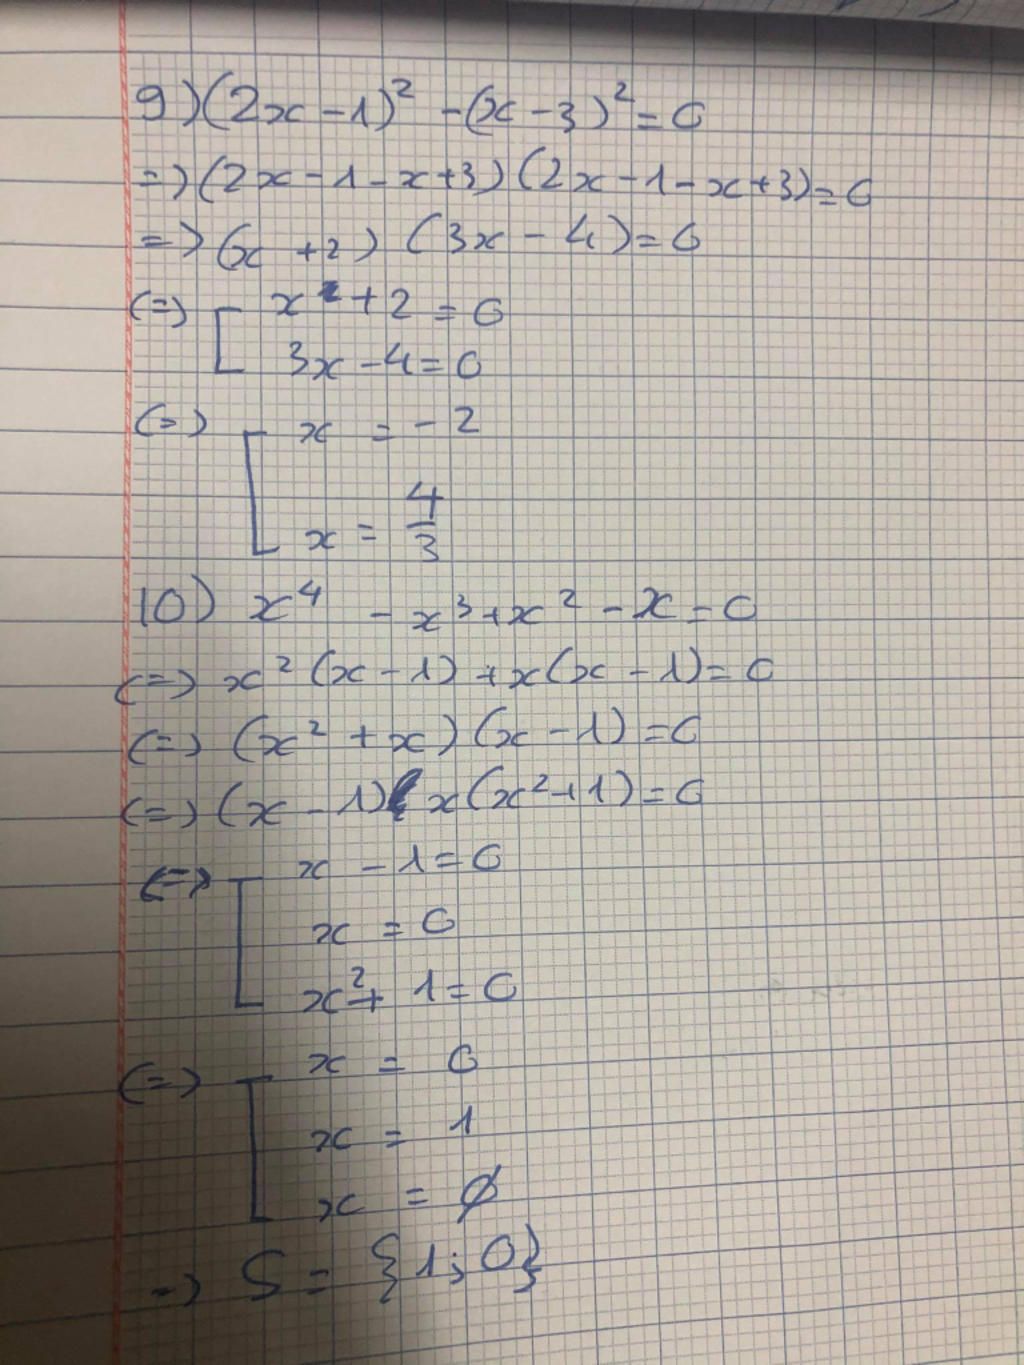 9) (2x - 1)² - (x - 3)² = 0
=> (2x - 1 - x + 3) (2x - 1 - x + 3) = 0
=> (x + 2) (3x - 4) = 0
(=) [ x + 2 = 0
3x - 4 = 0
(=) [ x = - 2
x = 4/3
10) x⁴ - x³ + x² - x = 0
(=) x² (x - 1) + x (x - 1) = 0
(=) (x² + x) (x - 1) = 0
(=) (x - 1) x (x² + 1) = 0
(=) [ x - 1 = 0
x = 0
x² + 1 = 0
(=) [ x = 0
x = 1
x = ∅
=> S = {1; 0}